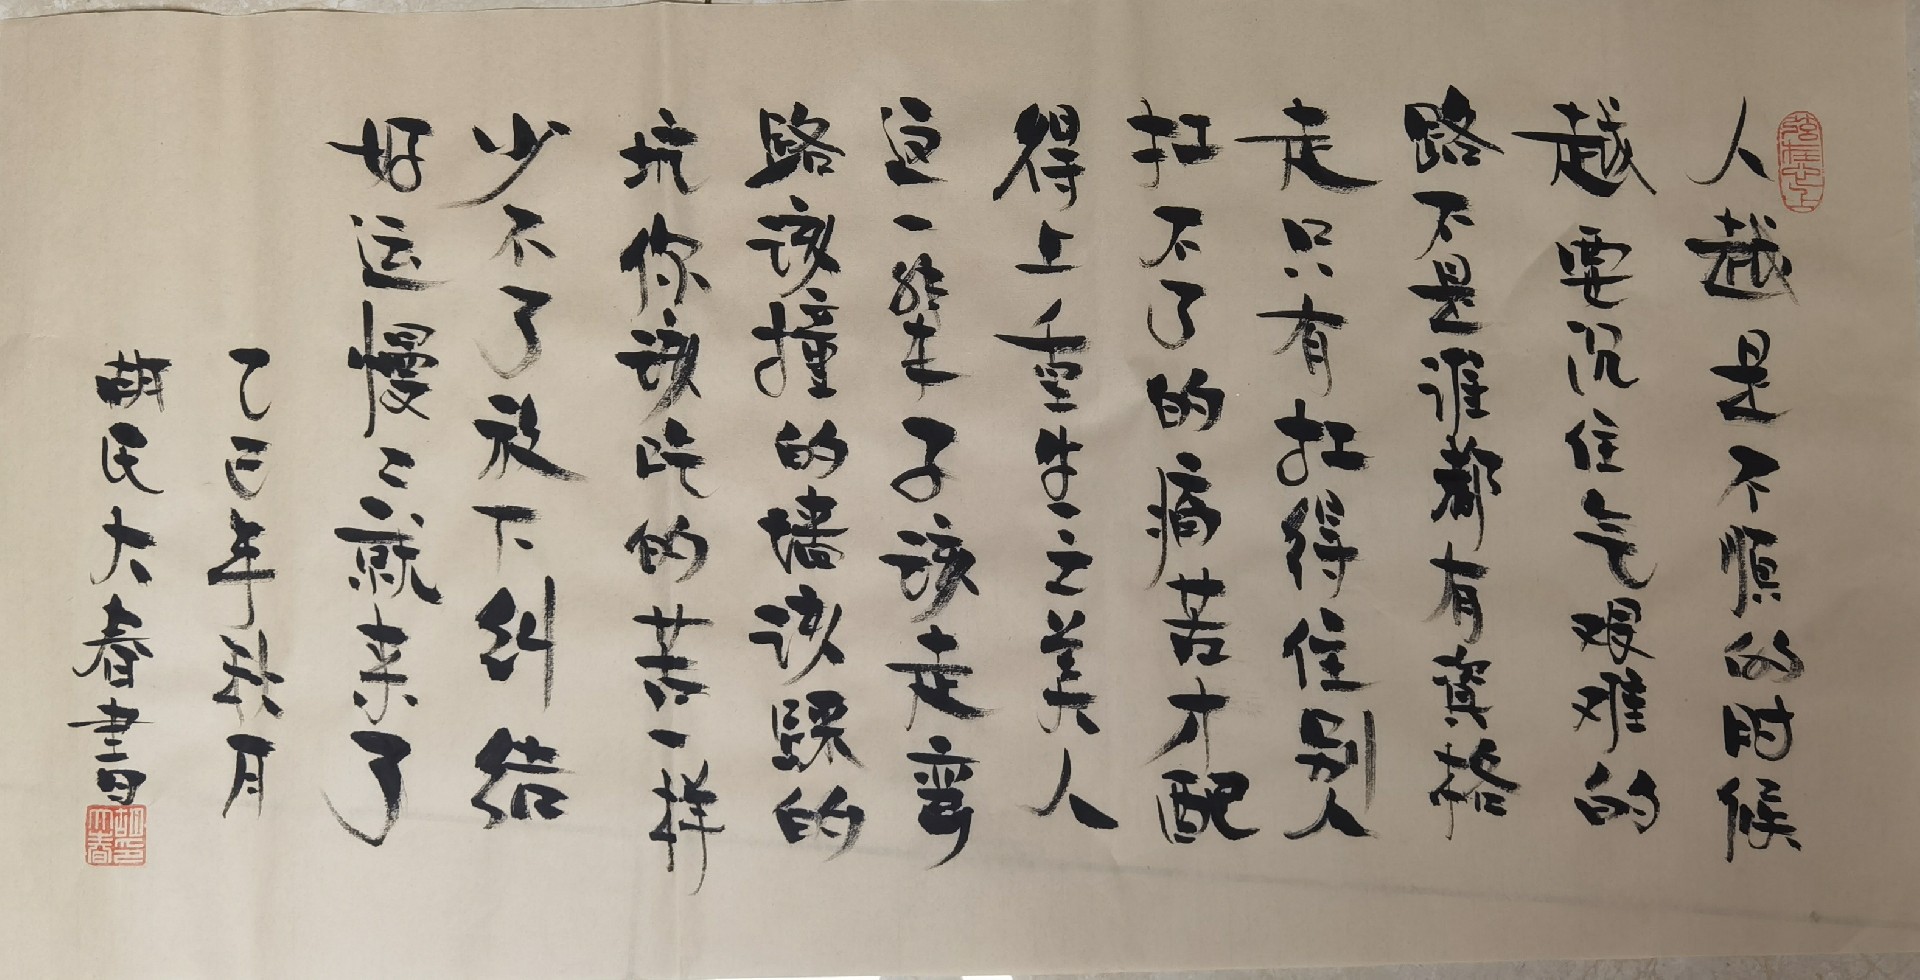 人越是不顺的时候
越要沉住气艰难的
路不是谁都有资格
走只有扛得住别人
扛不了的痛苦才配
得上重生之美人
这一辈子该走弯
路该撞的墙该踩的
坑你该吃的苦一样
少不了放下纠结
好运慢〻就来了
乙巳年秋月
胡民大春書